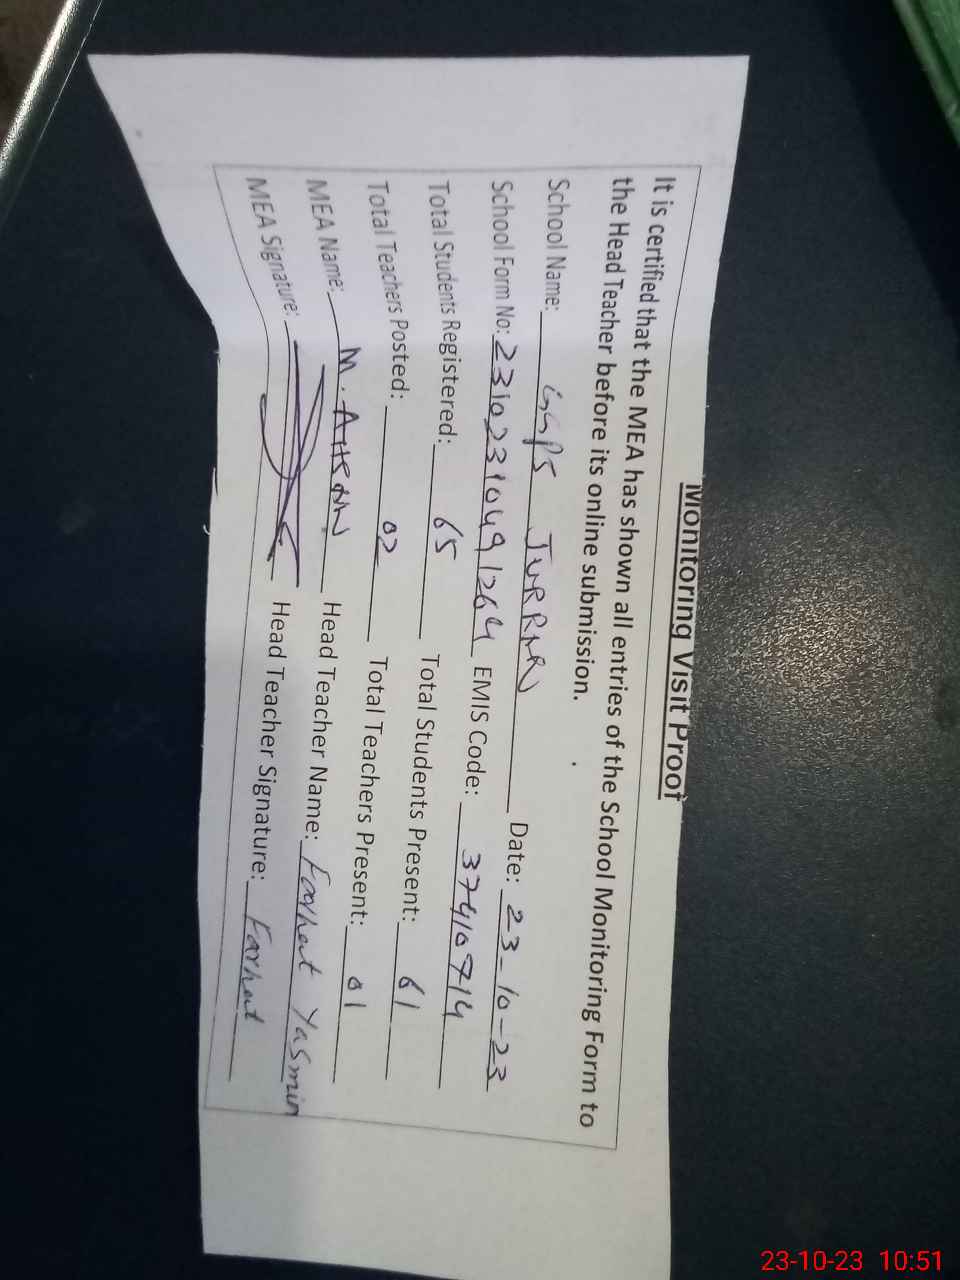 Monitoring Visit Proof
It is certified that the MEA has shown all entries of the School Monitoring Form to
the Head Teacher before its online submission.
School Name: GGPS JURRAR Date: 23-10-23
School Form No: 231023104491264 EMIS Code: 37410714
Total Students Registered: 65 Total Students Present: 61
Total Teachers Posted: 02 Total Teachers Present: 01
MEA Name: M. AHSAN Head Teacher Name: Farhat Yasmin
MEA Signature: Head Teacher Signature: Farhat
23-10-23 10:51